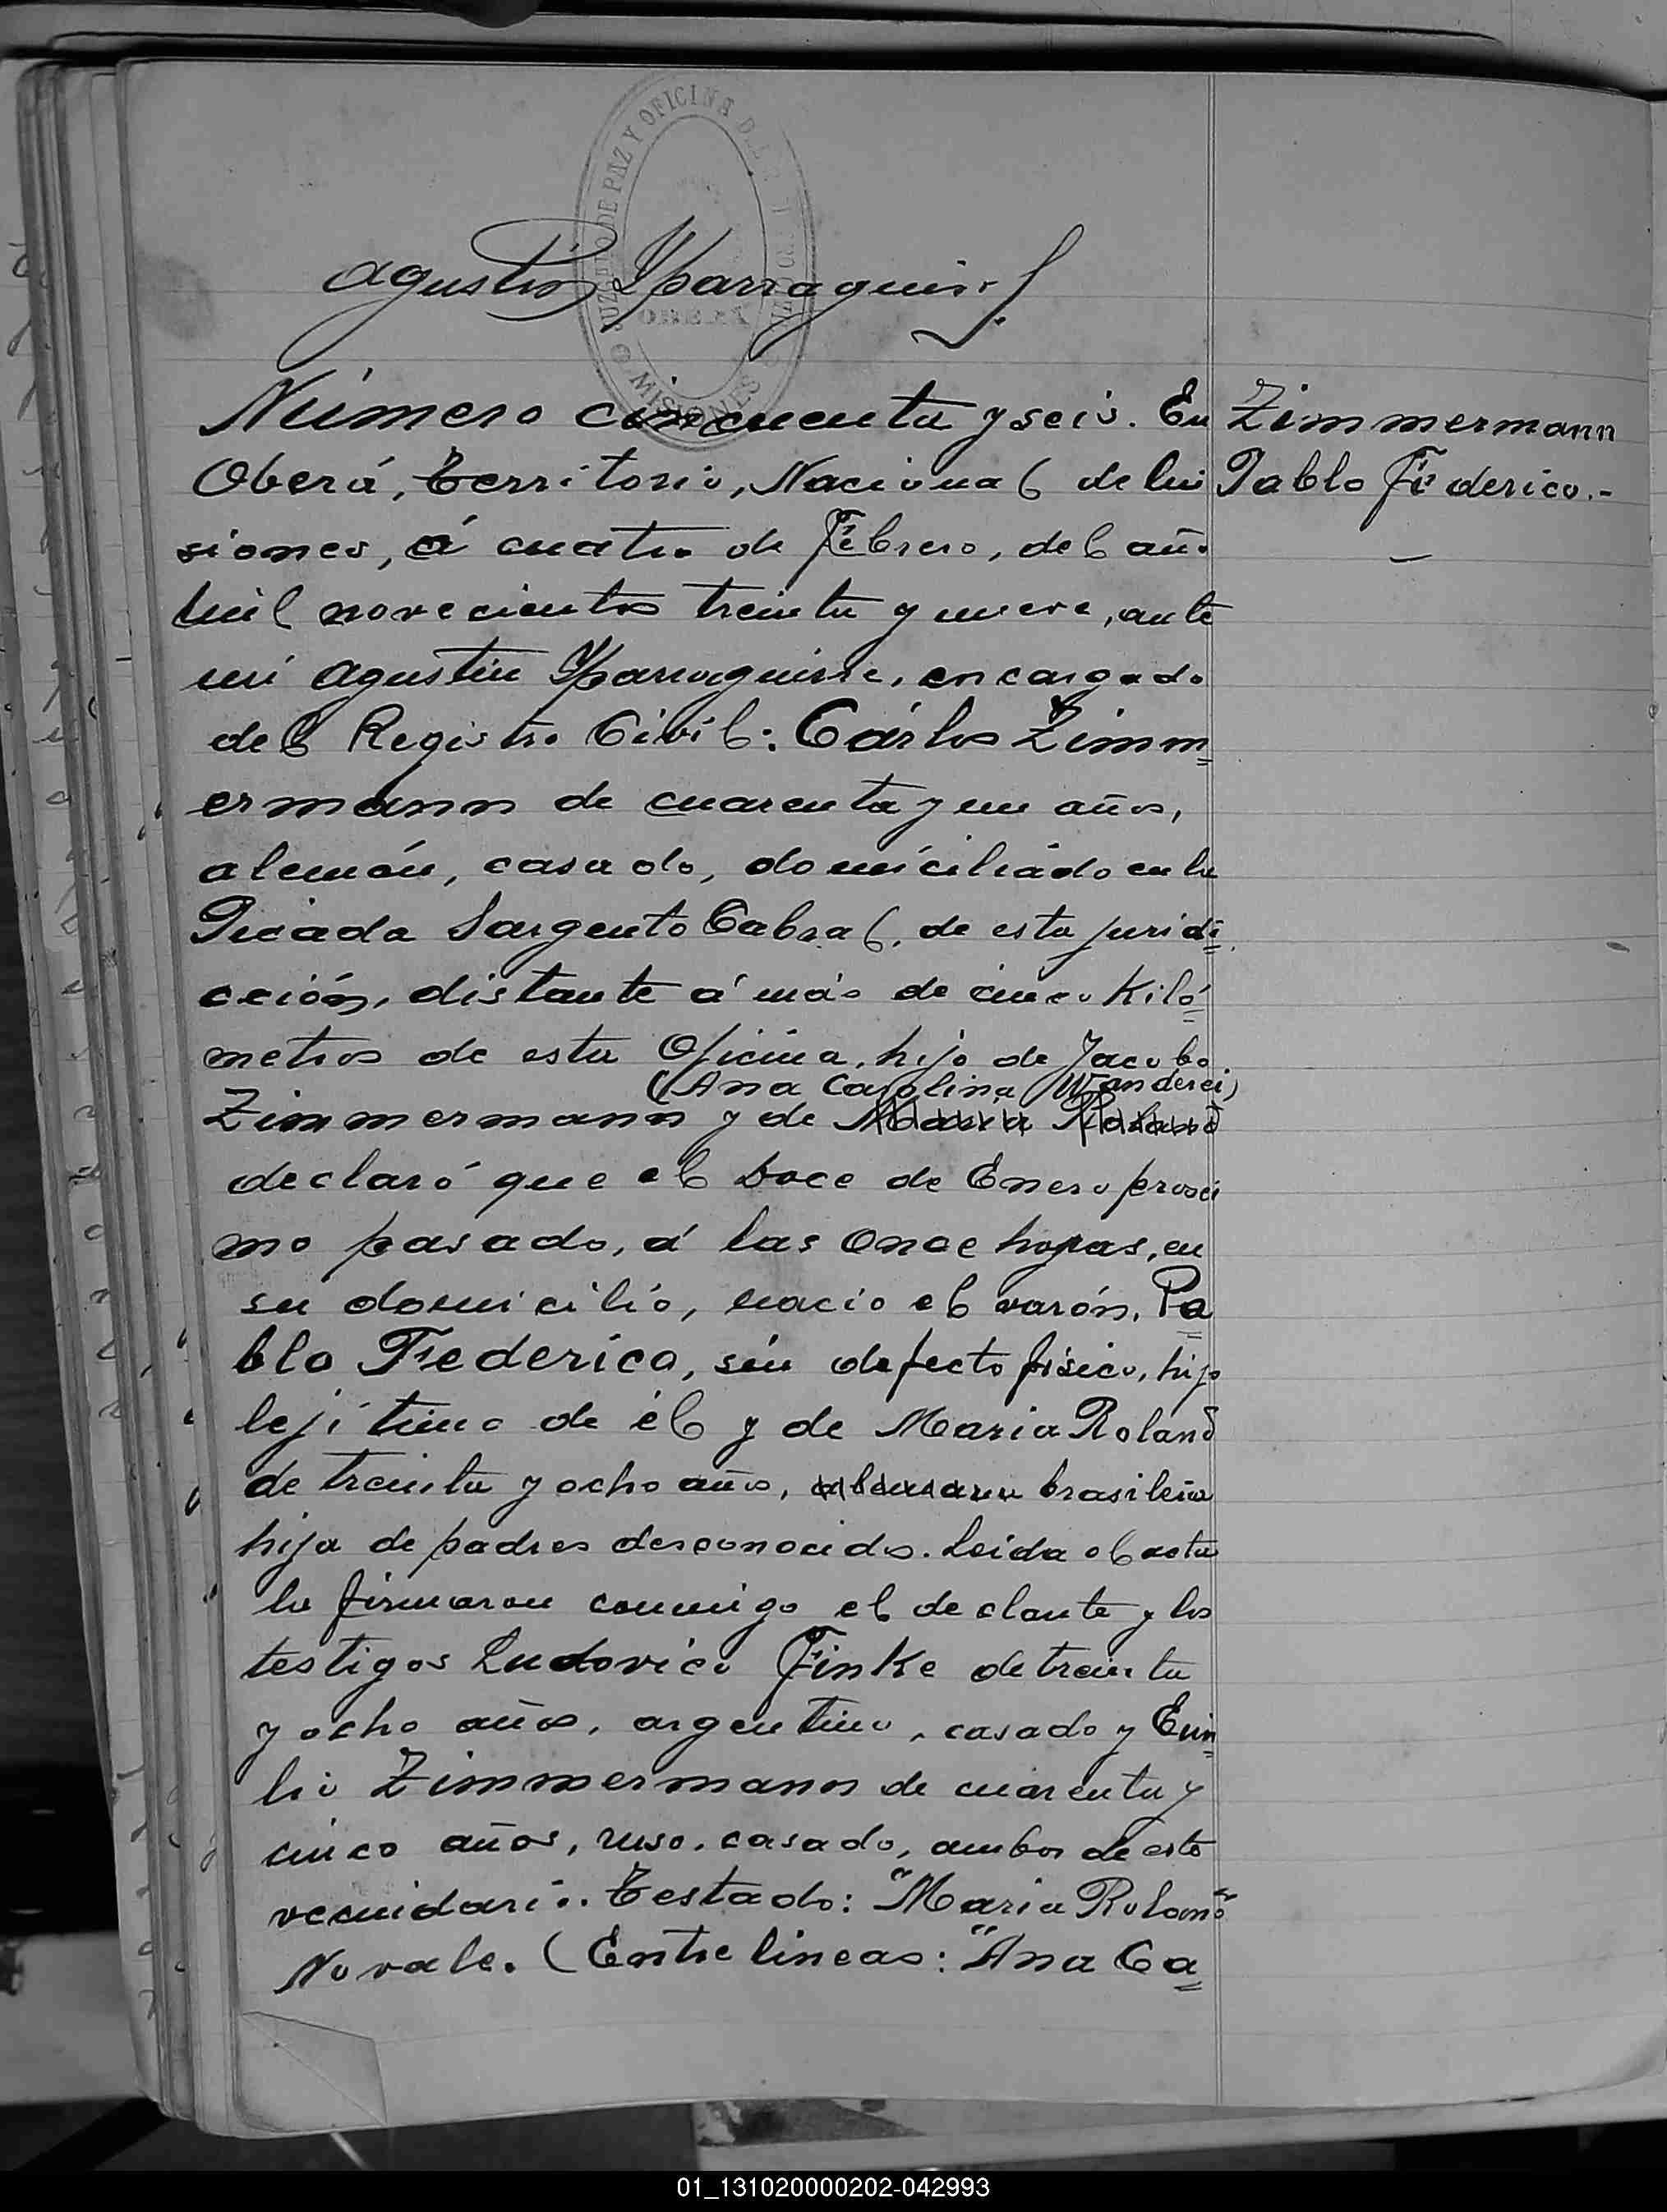 JUZGADO DE PAZ Y OFICINA DEL
MISIONES
Agustin Yparraguirre
Número cincuenta y seis. En
Zimmermann
Oberá, Territorio, Nacional de Mi
Pablo Federico.-
siones, á cuatro de Febrero, del año
mil novecientos treinta y nueve, ante
mi Agustin Yparraguirre, encargado
del Registro Civil: Cárlos Zimm=
ermann de cuarenta y un años,
alemán, casado, domiciliado en la
Picada Sargento Cabral, de esta juridi=
cción, distante á más de cinco Kiló=
metros de esta Oficina, hijo de Jacobo
(Ana Carolina Wanderei)
Zimmermann y de Maria Roland
declaró que el doce de Enero proxi
mo pasado, á las once horas, en
su domicilio, nacio el varón, Pa=
blo Federico, sin defecto fisico, hijo
lejitimo de él y de Maria Roland
de treinta y ocho años, alemana brasileña
hija de padres desconocidos. Leida el acta
la firmaron conmigo el declante y los
testigos Ludovico Finke de treinta
y ocho años, argentino, casado y Emi=
lio Zimmermann de cuarenta y
cinco años, ruso, casado, ambos de este
vecindario. Testado: "Maria Roland"
No vale. (Entre lineas: "Ana Ca=
01_131020000202-042993